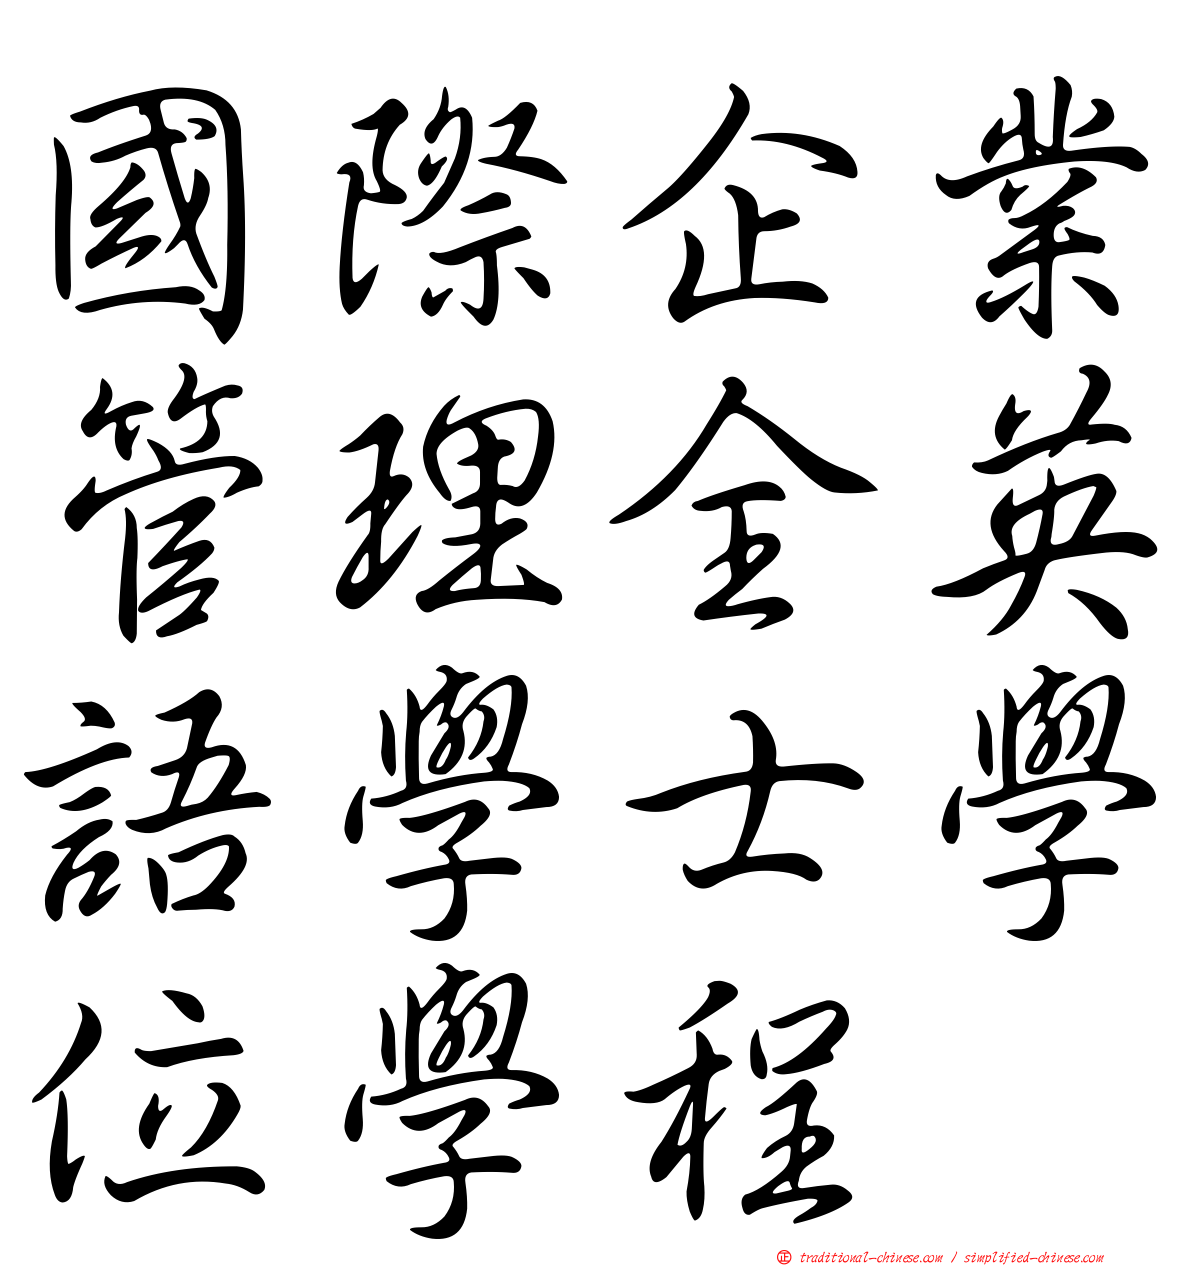 國際企業
管理全英
語學士學
位學程
正 traditional-chinese.com / simplified-chinese.com